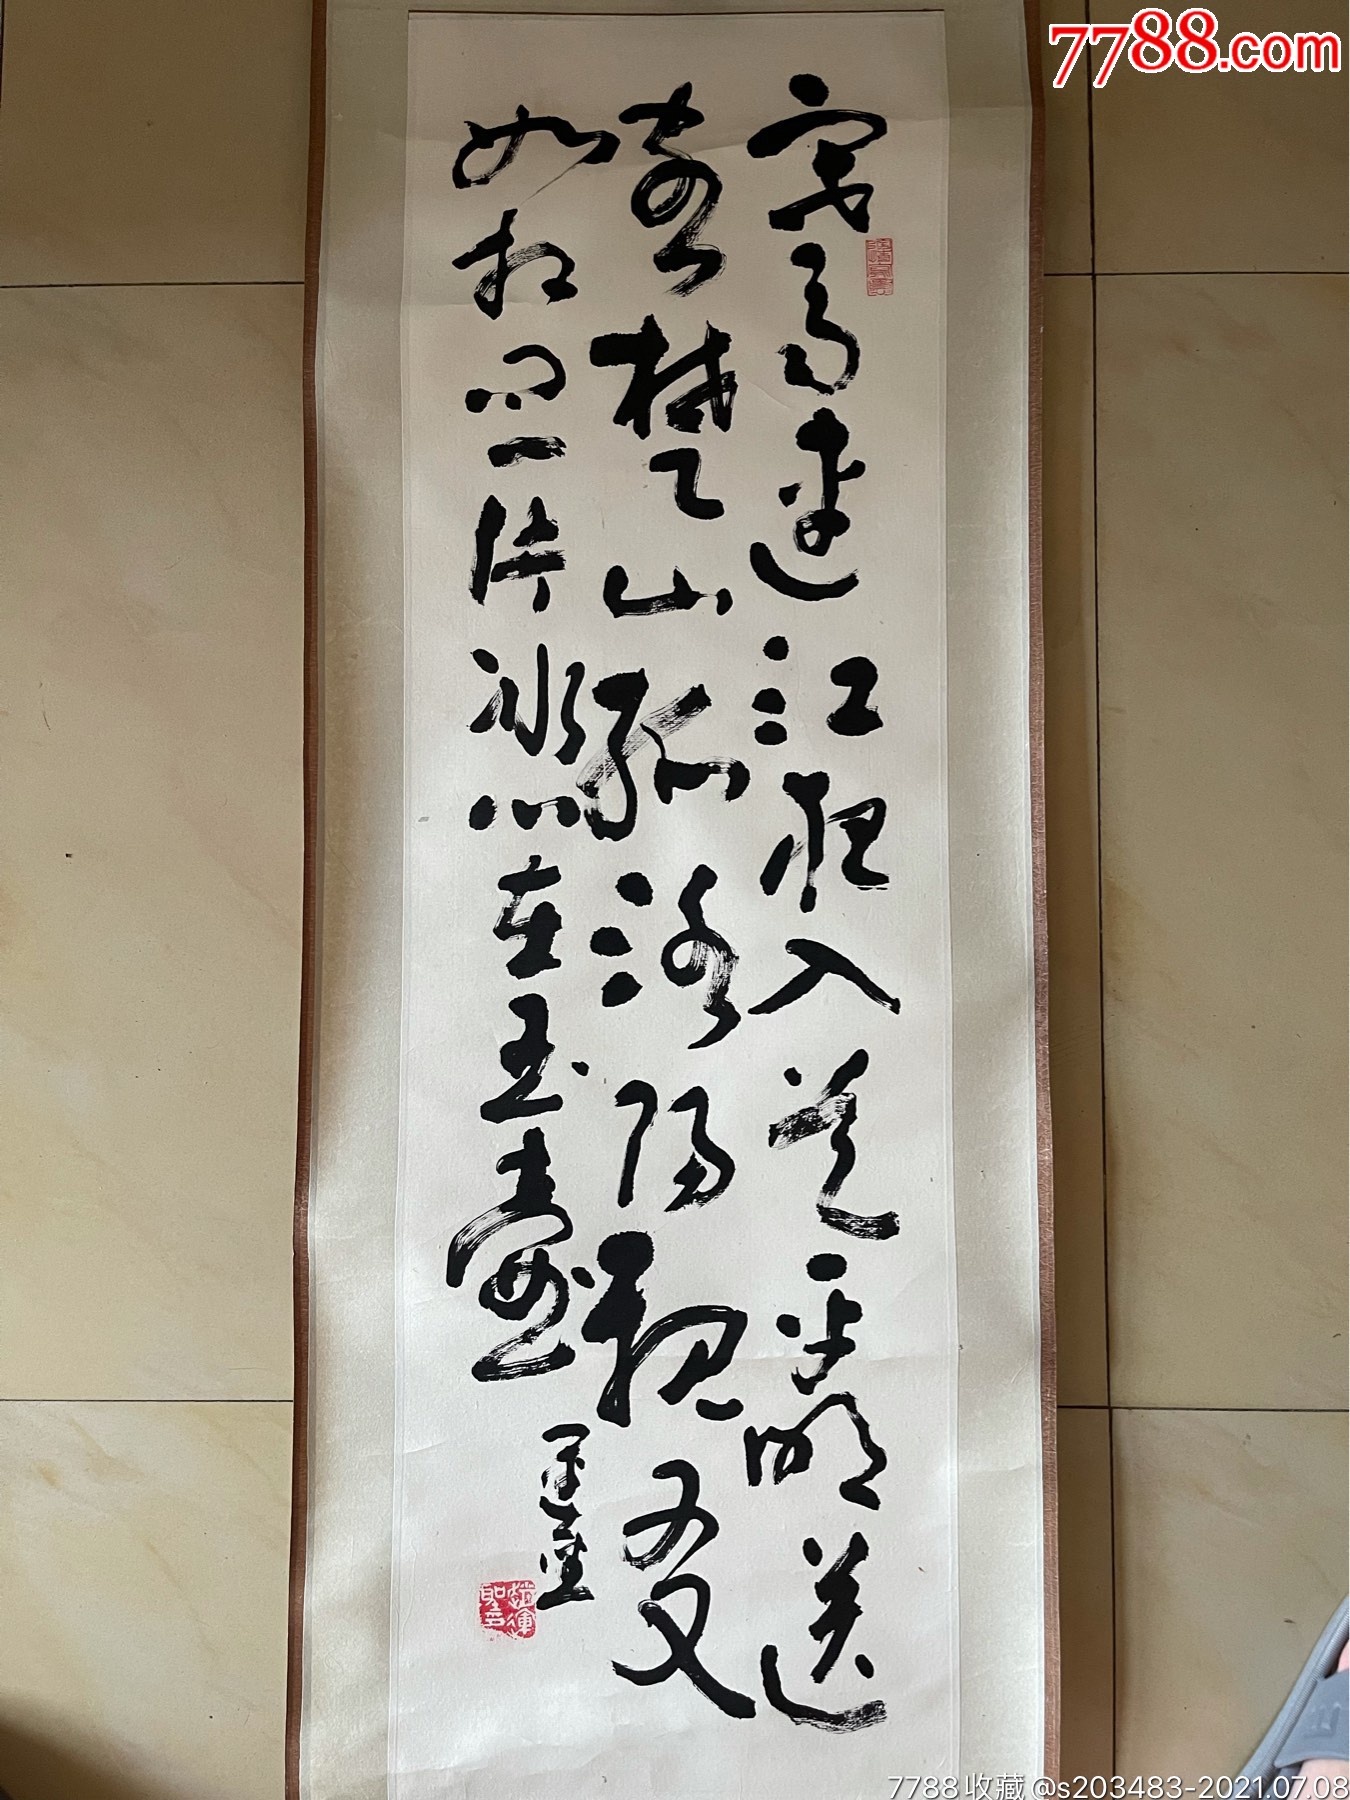 7788.com
寒雨連江夜入吴平明送
客楚山孤洛陽親友
如相问一片冰心在玉壺
運聖
7788收藏@s203483-2021.07.08